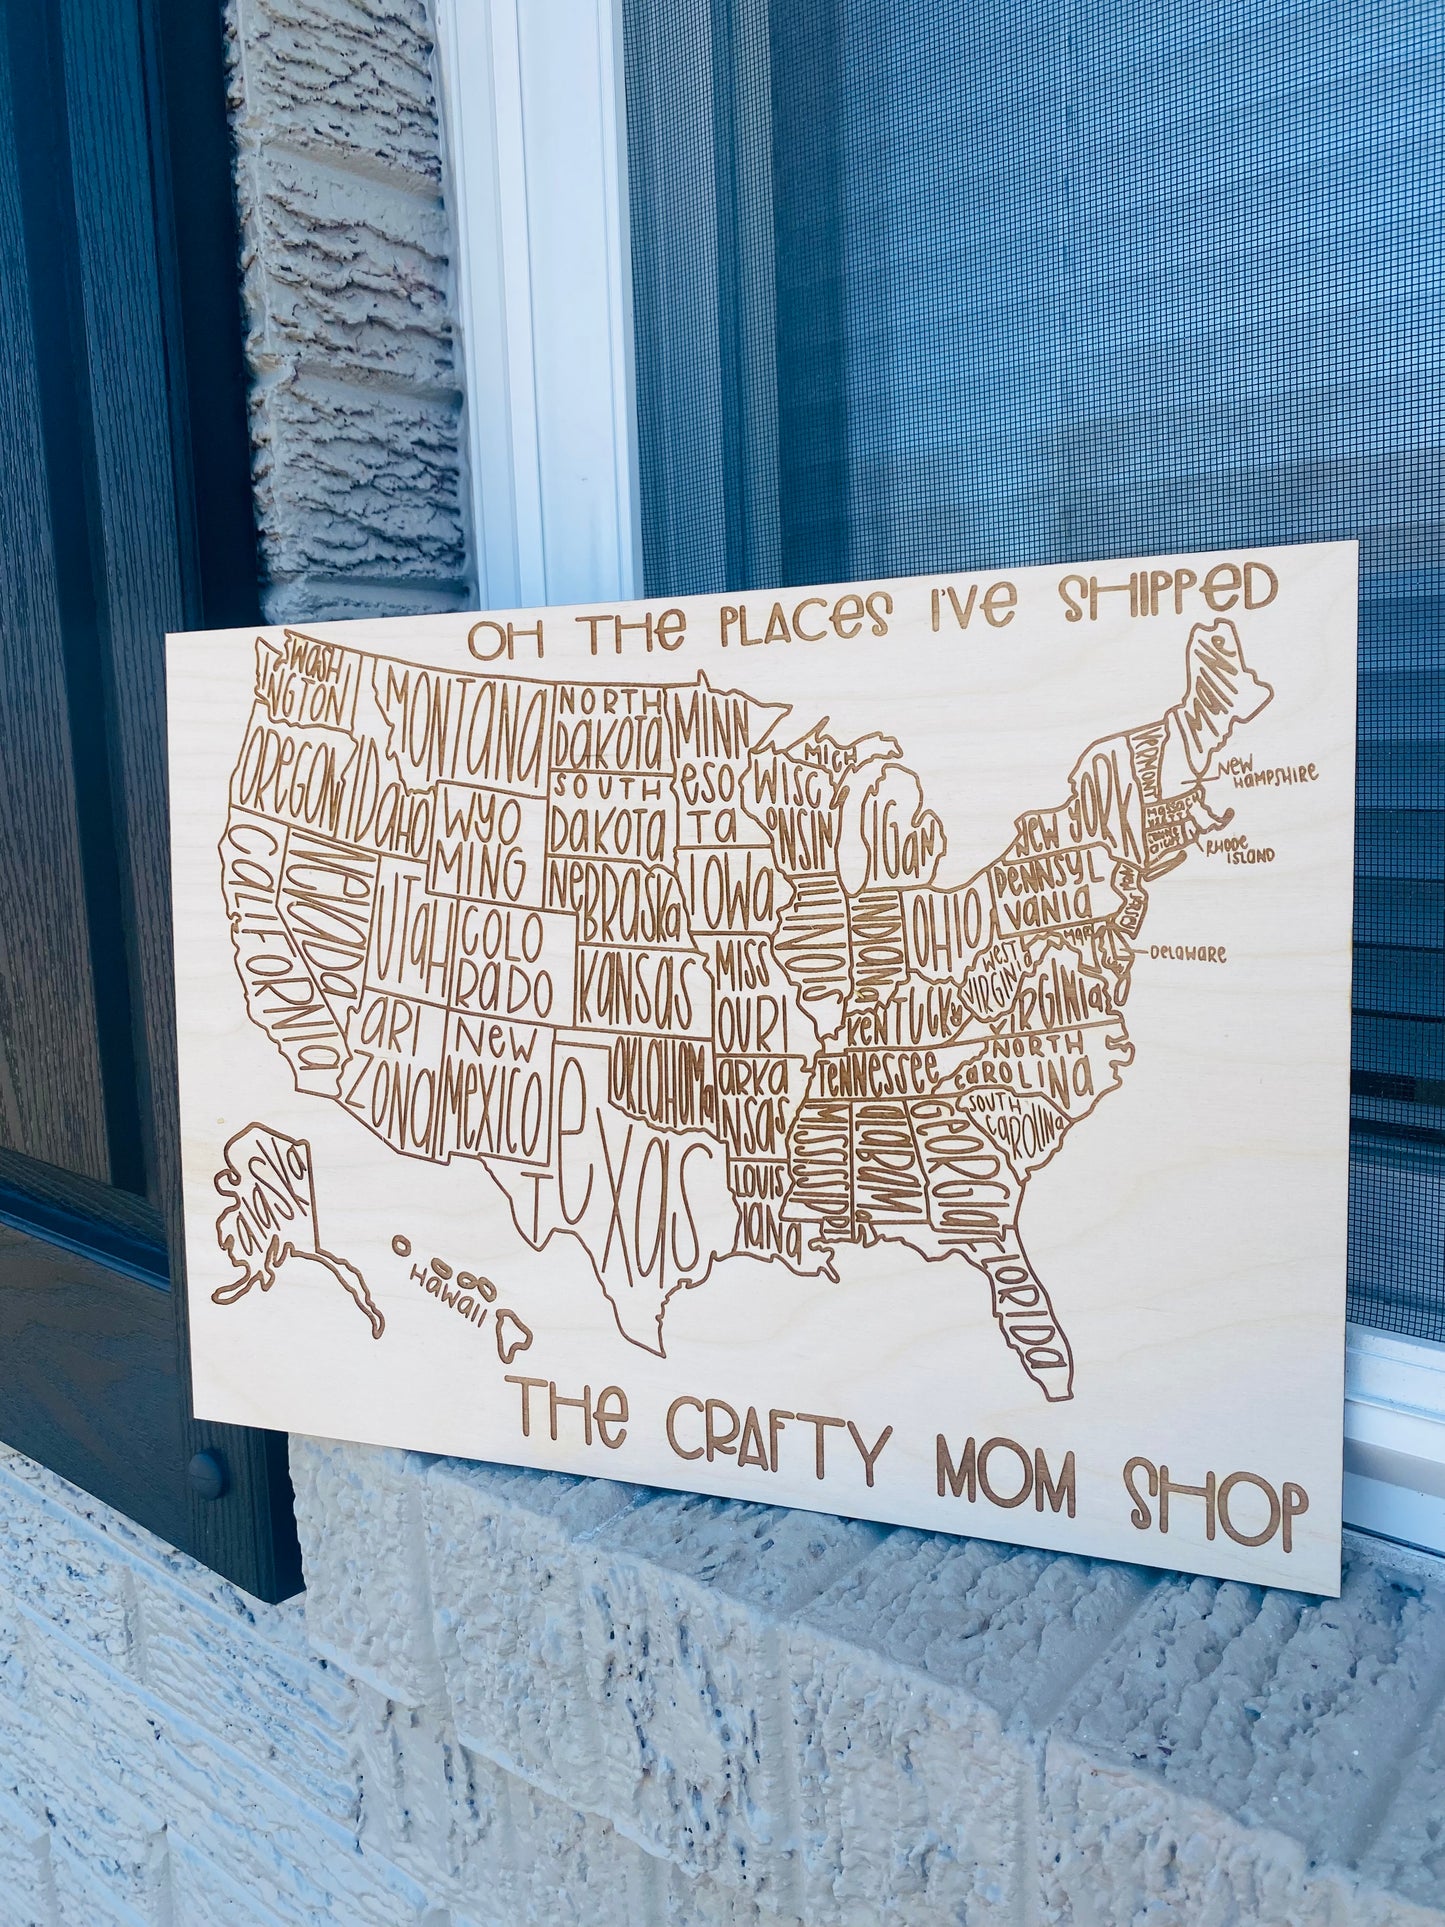 OH THE PLACES I'VE SHIPPED
WASH
INGTON
MONTANA
NORTH
DAKOTA
MINN
ESO
TA
MICH
IGAN
MAINE
VERMONT
NEW
HAMPSHIRE
OREGON
IDAHO
WYO
MING
SOUTH
DAKOTA
WISC
ONSIN
NEW YORK
MASSACH
RHODE
ISLAND
CALIFORNIA
NEVADA
UTAH
COLO
RADO
NEBRASKA
IOWA
ILLINOIS
INDIANA
OHIO
PENNSYL
VANIA
DELAWARE
KANSAS
MISS
OURI
KENTUCKY
WEST
VIRGINIA
VIRGINIA
MARY
ARI
ZONA
NEW
MEXICO
OKLAHOMA
ARKA
NSAS
TENNESSEE
NORTH
CAROLINA
SOUTH
CAROLINA
TEXAS
LOUIS
IANA
MISSISSIPPI
ALABAMA
GEORGIA
FLORIDA
ALASKA
HAWAII
THE CRAFTY MOM SHOP